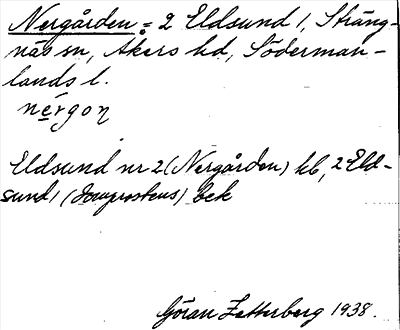 Nergården = 2 Eldsund 1, Sträng-
näs sn, Åkers hd, Söderman-
lands l.
nę́rgoɳ
Eldsund nr 2 (Nergården) kb, 2 Eld-
sund 1 (Domprostens) bek
Göran Zetterberg 1938.